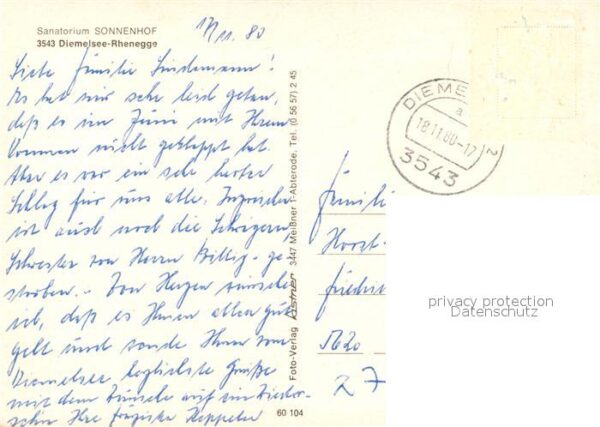 Sanatorium SONNENHOF
3543 Diemelsee-Rhenegge
17/11. 80
Liebe Familie Lindemann!
Es hat mir sehr leid getan,
daß es im Juni mit Ihrem
Kommen nicht geklappt hat.
Aber es war ein sehr harter
Schlag für uns alle. Inzwischen
ist auch noch die Schwägerin
Schwester von Herrn Billig ge-
storben. Von Herzen wünsche
ich, daß es Ihnen allen gut
geht und sende Ihnen vom
Diemelsee herzlichste Grüße
mit dem Wunsche auf ein Wieder-
sehn Ihre Keppeler
Foto-Verlag 3447 Meißner 1-Abterode, Tel. (0 56 57) 2 45
60 104
DIEME
a
18.11.80-17
3543
2
Familie
Horst-
friedr
5620
27
privacy protection
Datenschutz